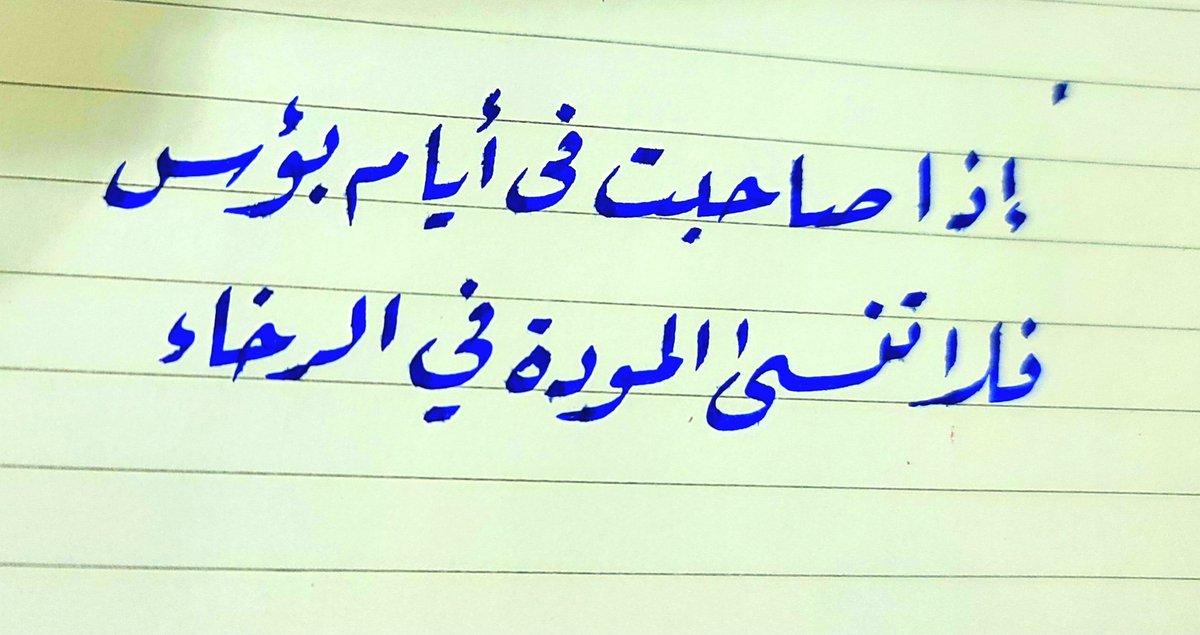 إذا صاحبت فى أيام بؤس
فلا تنسى المودة في الرخاء